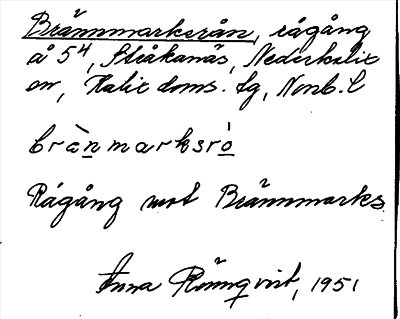 Brännmarksrån, rågång
å 5⁴, Stråkanäs, Nederkalix
sn, Kalix doms. tg, Nonb. l
brä̀nmarksró
Rågång mot Brännmarks.
Anna Rönnqvist, 1951